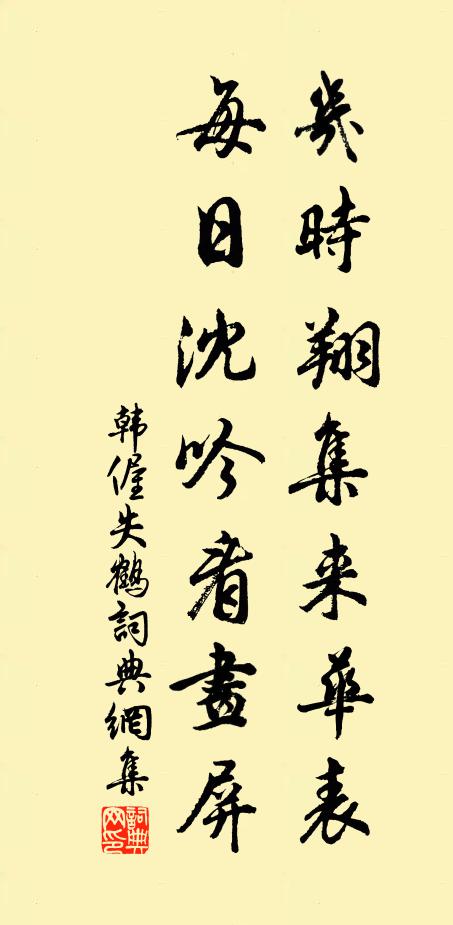 幾時翔集来華表
每日沈吟看畫屏
韩偓失鶴詞典網集
詞典網印